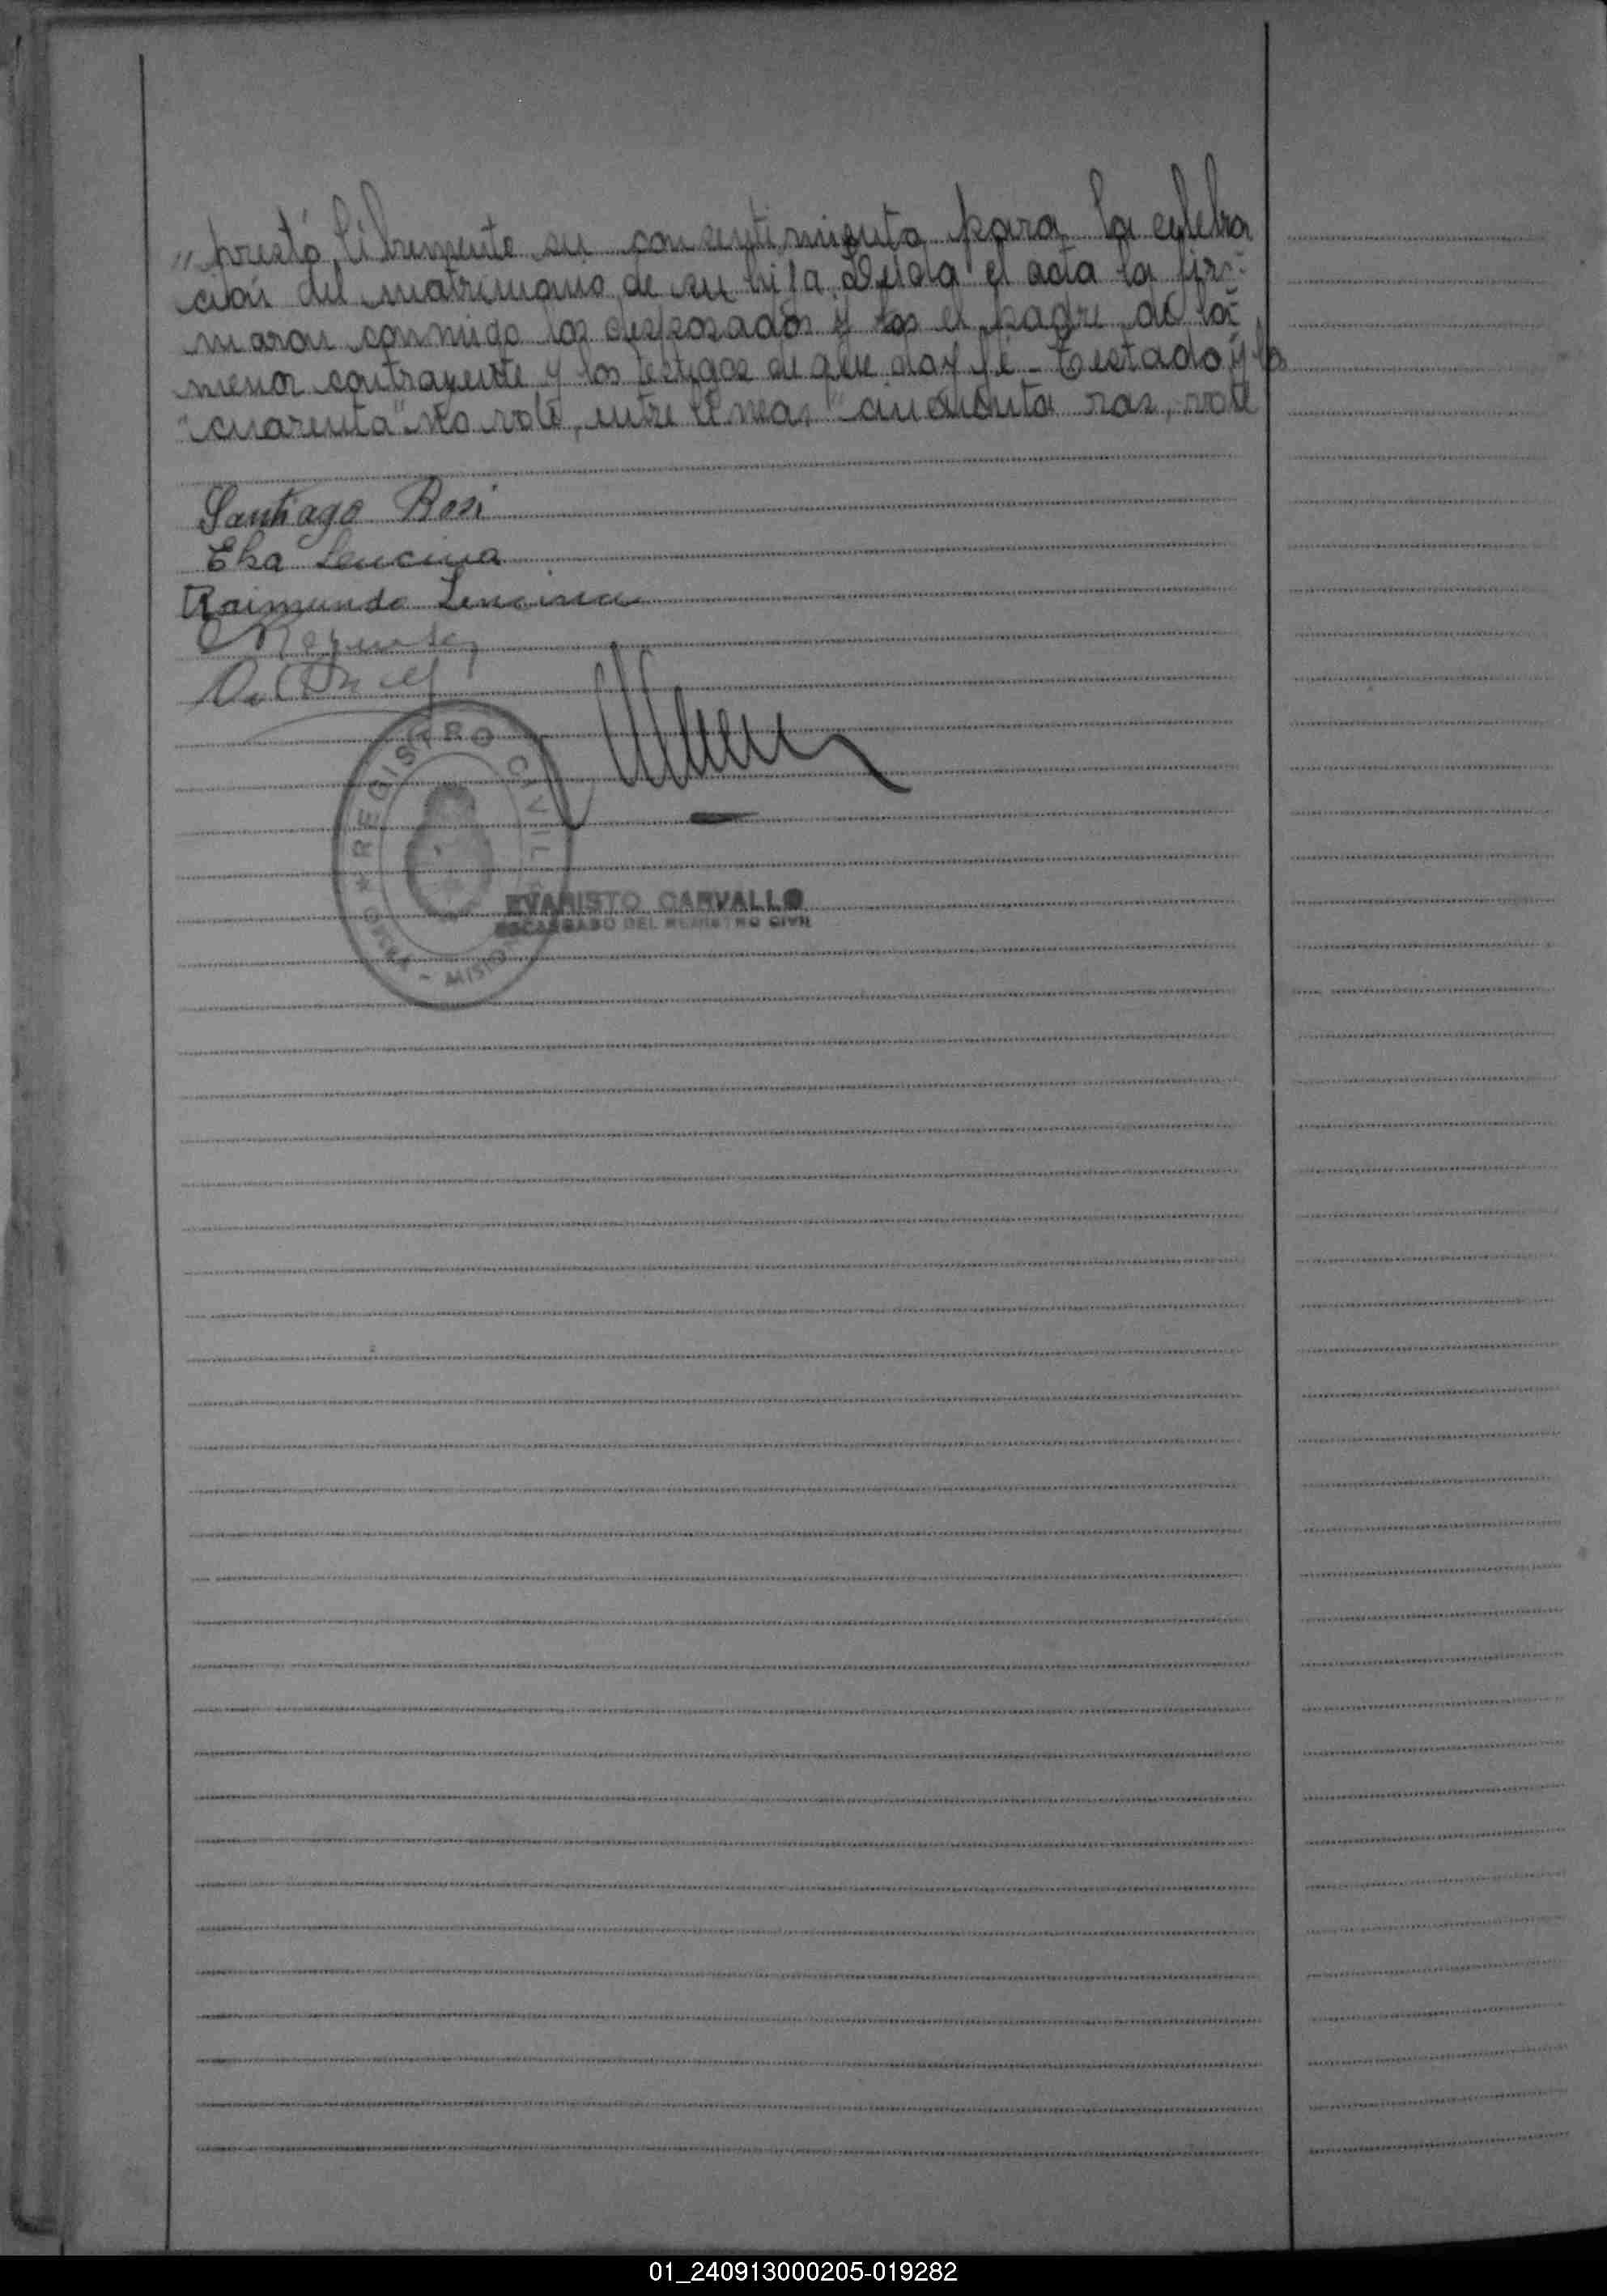 "prestó libremente su consentimiento para la celebra
ción del matrimonio de su hija. Leída el acta la fir-
maron conmigo los desposados y los el padre de la
menor contrayente y los testigos de que doy fé - Testado y lo
"cuarenta" no vale, entre líneas "cincuenta vale
Santiago Rosi
Elsa Lencina
Raimundo Lencina
REGISTRO CIVIL
EVARISTO CARVALLO
ENCARGADO DEL REGISTRO CIVIL
01_240913000205-019282